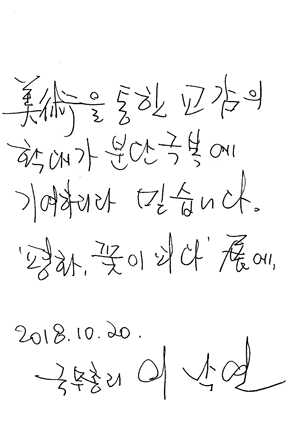 美術을 통한 교감의
확대가 분단극복에
기여하리라 믿습니다.
'평화, 꽃이 피다' 展에,
2018.10.20.
국무총리 이낙연